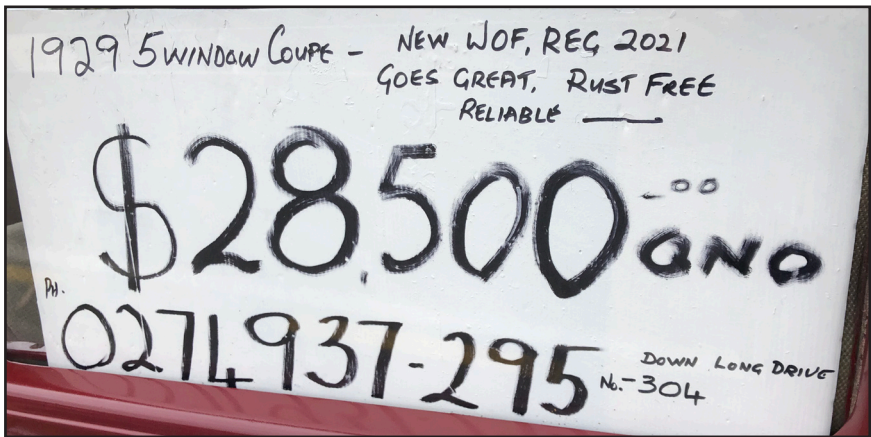 1929 5 WINDOW COUPE - NEW WOF, REG 2021
GOES GREAT, RUST FREE
RELIABLE —
$28,500.00 ONO
PH.
0274937-295
DOWN LONG DRIVE
No.-304